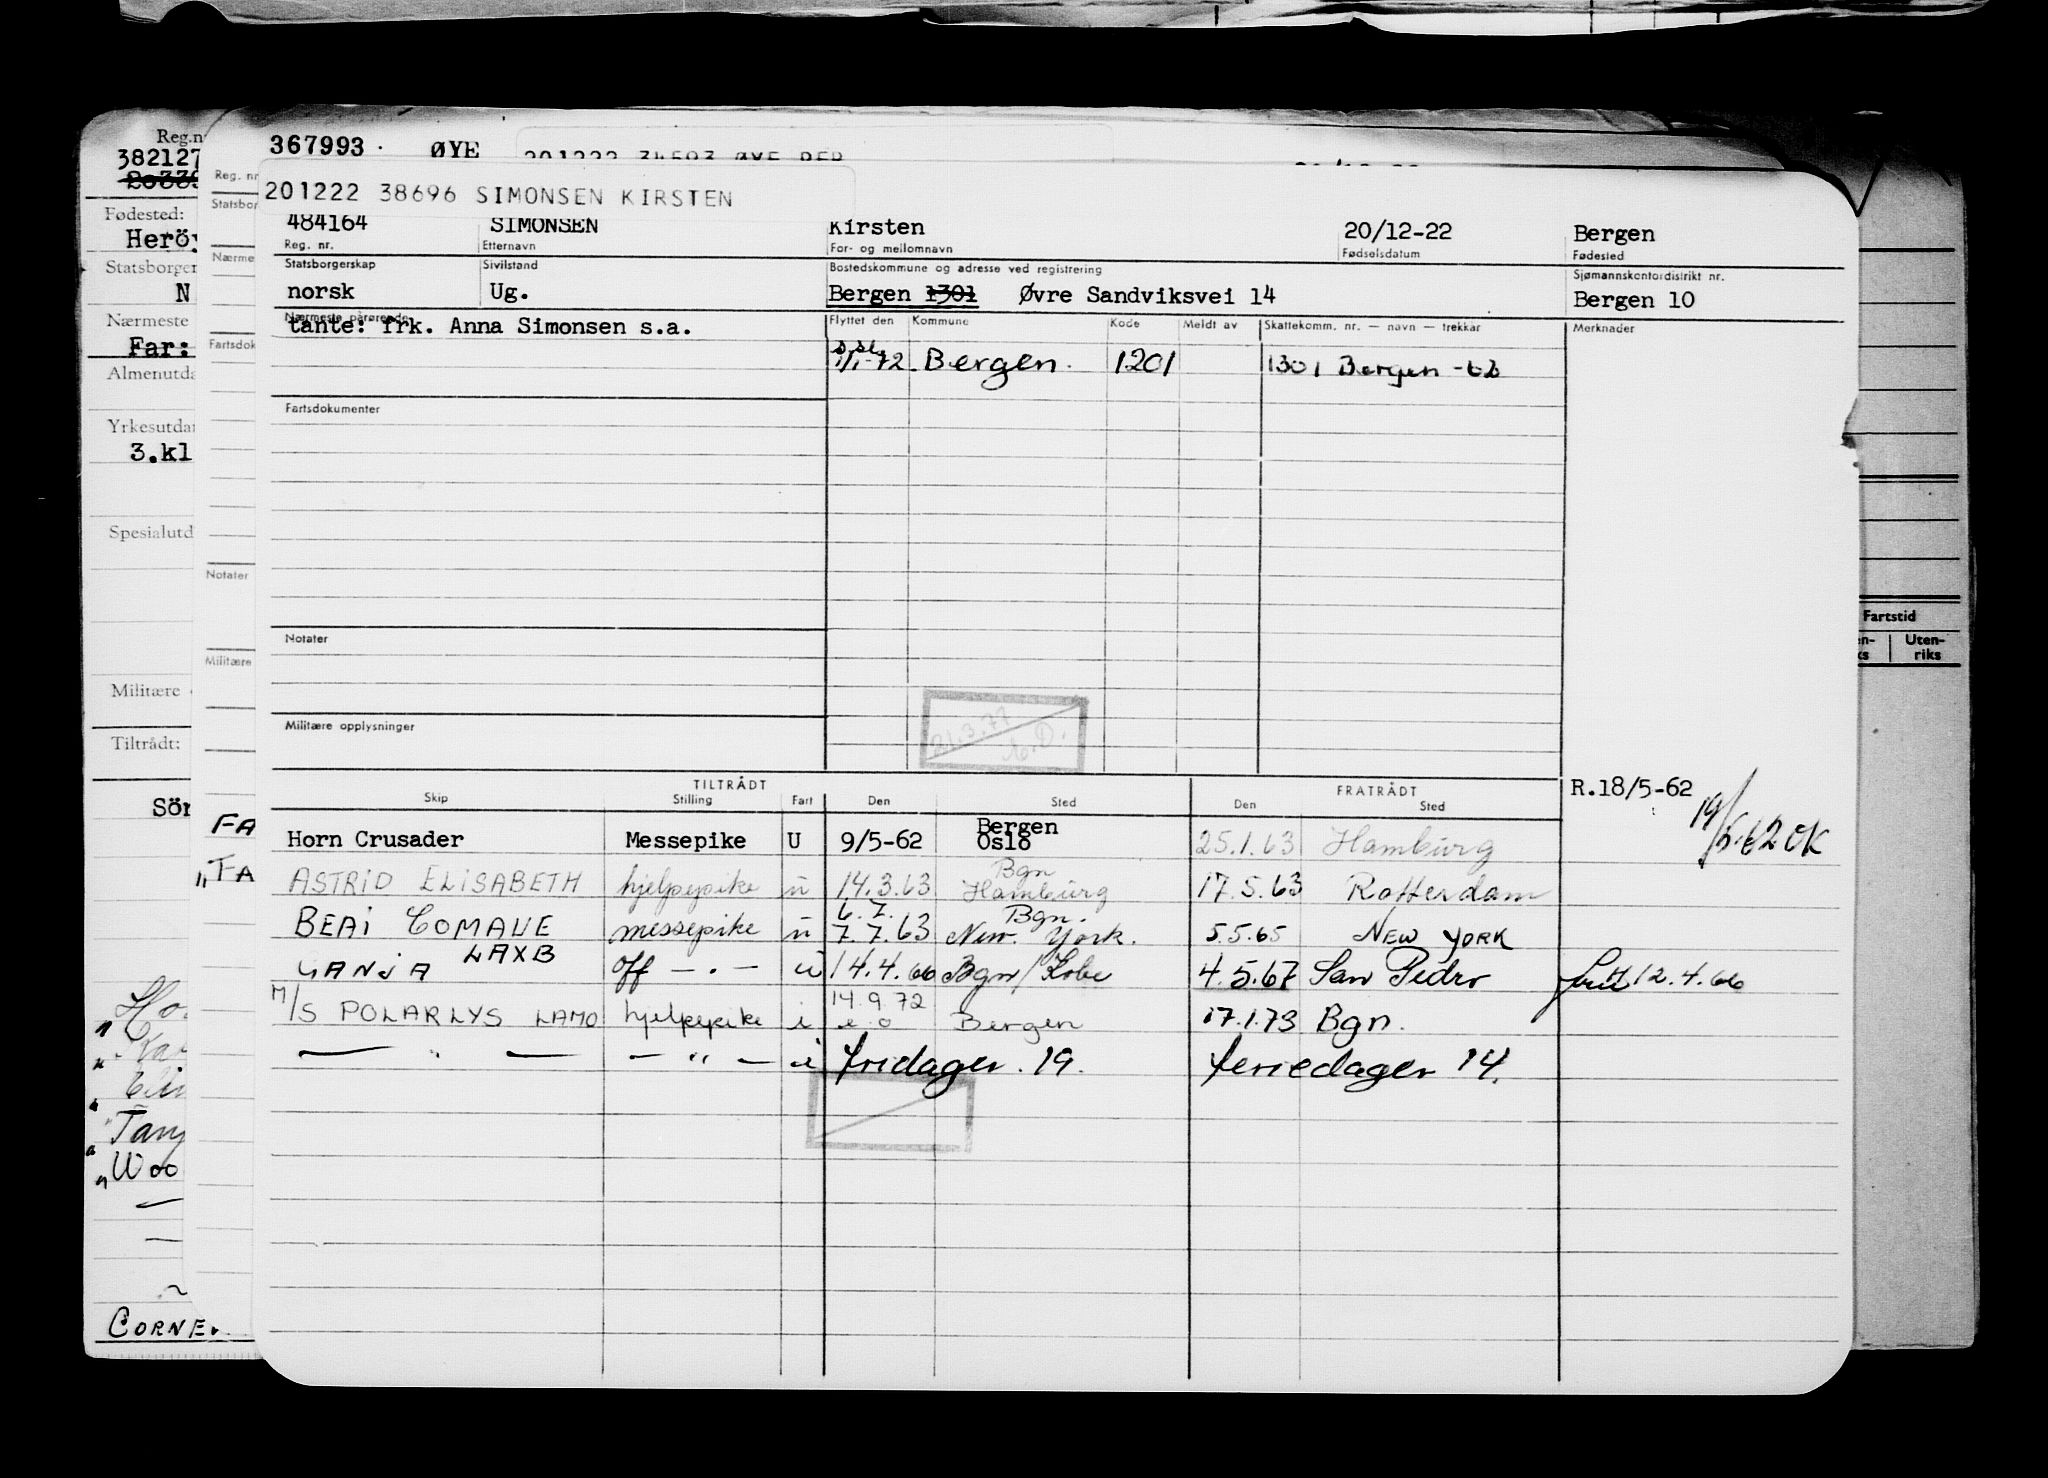 Reg.n
382127
Fødested:
Herö
Statsborger
N
Nærmeste
Far:
Almenutda
Yrkesutda
3.kl
Spesialutd
Militære
Tiltrådt:
Sör
Tan
Woo
CORNE
367993. ØYE
Reg. nr
Statsbor
Nærme
Fartsdok
Notater
Militære
FA
"FA
201222 34593 ØYE PER
201222 38696 SIMONSEN KIRSTEN
484164 SIMONSEN Kirsten 20/12-22 Bergen
Reg. nr. Etternavn For- og mellomnavn Fødselsdatum Fødested
Statsborgerskap Sivilstand Bostedskommune og adresse ved registrering Sjømannskontordistrikt nr.
norsk Ug. Bergen 1301 Øvre Sandviksvei 14 Bergen 10
Nærmeste pårørende Flyttet den Kommune Kode Meldt av Skattekomm. nr. — navn — trekkår Merknader
tante: frk. Anna Simonsen s.a.
1/1-72 Bergen. 1201 1301 Bergen
Fartsdokumenter
Notater
Militære opplysninger
21.3.77
TILTRÅDT FRATRÅDT R.18/5-62
Skip Stilling Fart Den Sted Den Sted
19/5-62 OK
Bergen
Horn Crusader Messepike U 9/5-62 Oslo 25.1.63 Hamburg
Bgn
ASTRID ELISABETH hjelpepike u 14.3.63 Hamburg 17.5.63 Rotterdam
6.7. Bgn.
messepike u 7.7.63 New York. 5.5.65 NEW YORK
LAXB
GANJA Off — . — u 14.4.66 Bgn/Kobe 4.5.67 San Pedro 12.4.66
14.9.72
M/S POLARLYS LAMO hjelpepike i e.o Bergen 17.1.73 Bgn.
— " — — " — i fridager. 19. feriedager 14.
Fartstid
Uten-
riks